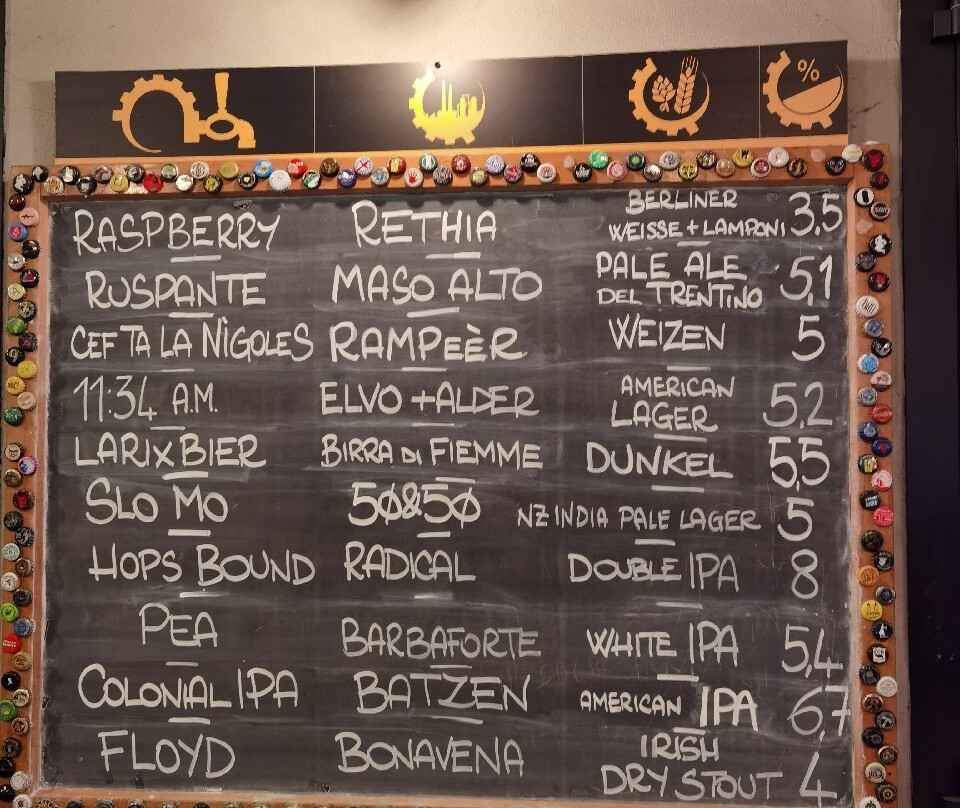 %
RASPBERRY RETHIA BERLINER WEISSE + LAMPONI 3,5
RUSPANTE MASO ALTO PALE ALE DEL TRENTINO 5,1
CEF TA LA NÌGOLES RAMPEÈR WEIZEN 5
11:34 A.M. ELVO + ALDER AMERICAN LAGER 5,2
LARIXBIER BIRRA DI FIEMME DUNKEL 5,5
SLO MO 50&50 NZ INDIA PALE LAGER 5
HOPS BOUND RADICAL DOUBLE IPA 8
PEA BARBAFORTE WHITE IPA 5,4
COLONIAL IPA BATZEN AMERICAN IPA 6,7
FLOYD BONAVENA IRISH DRY STOUT 4